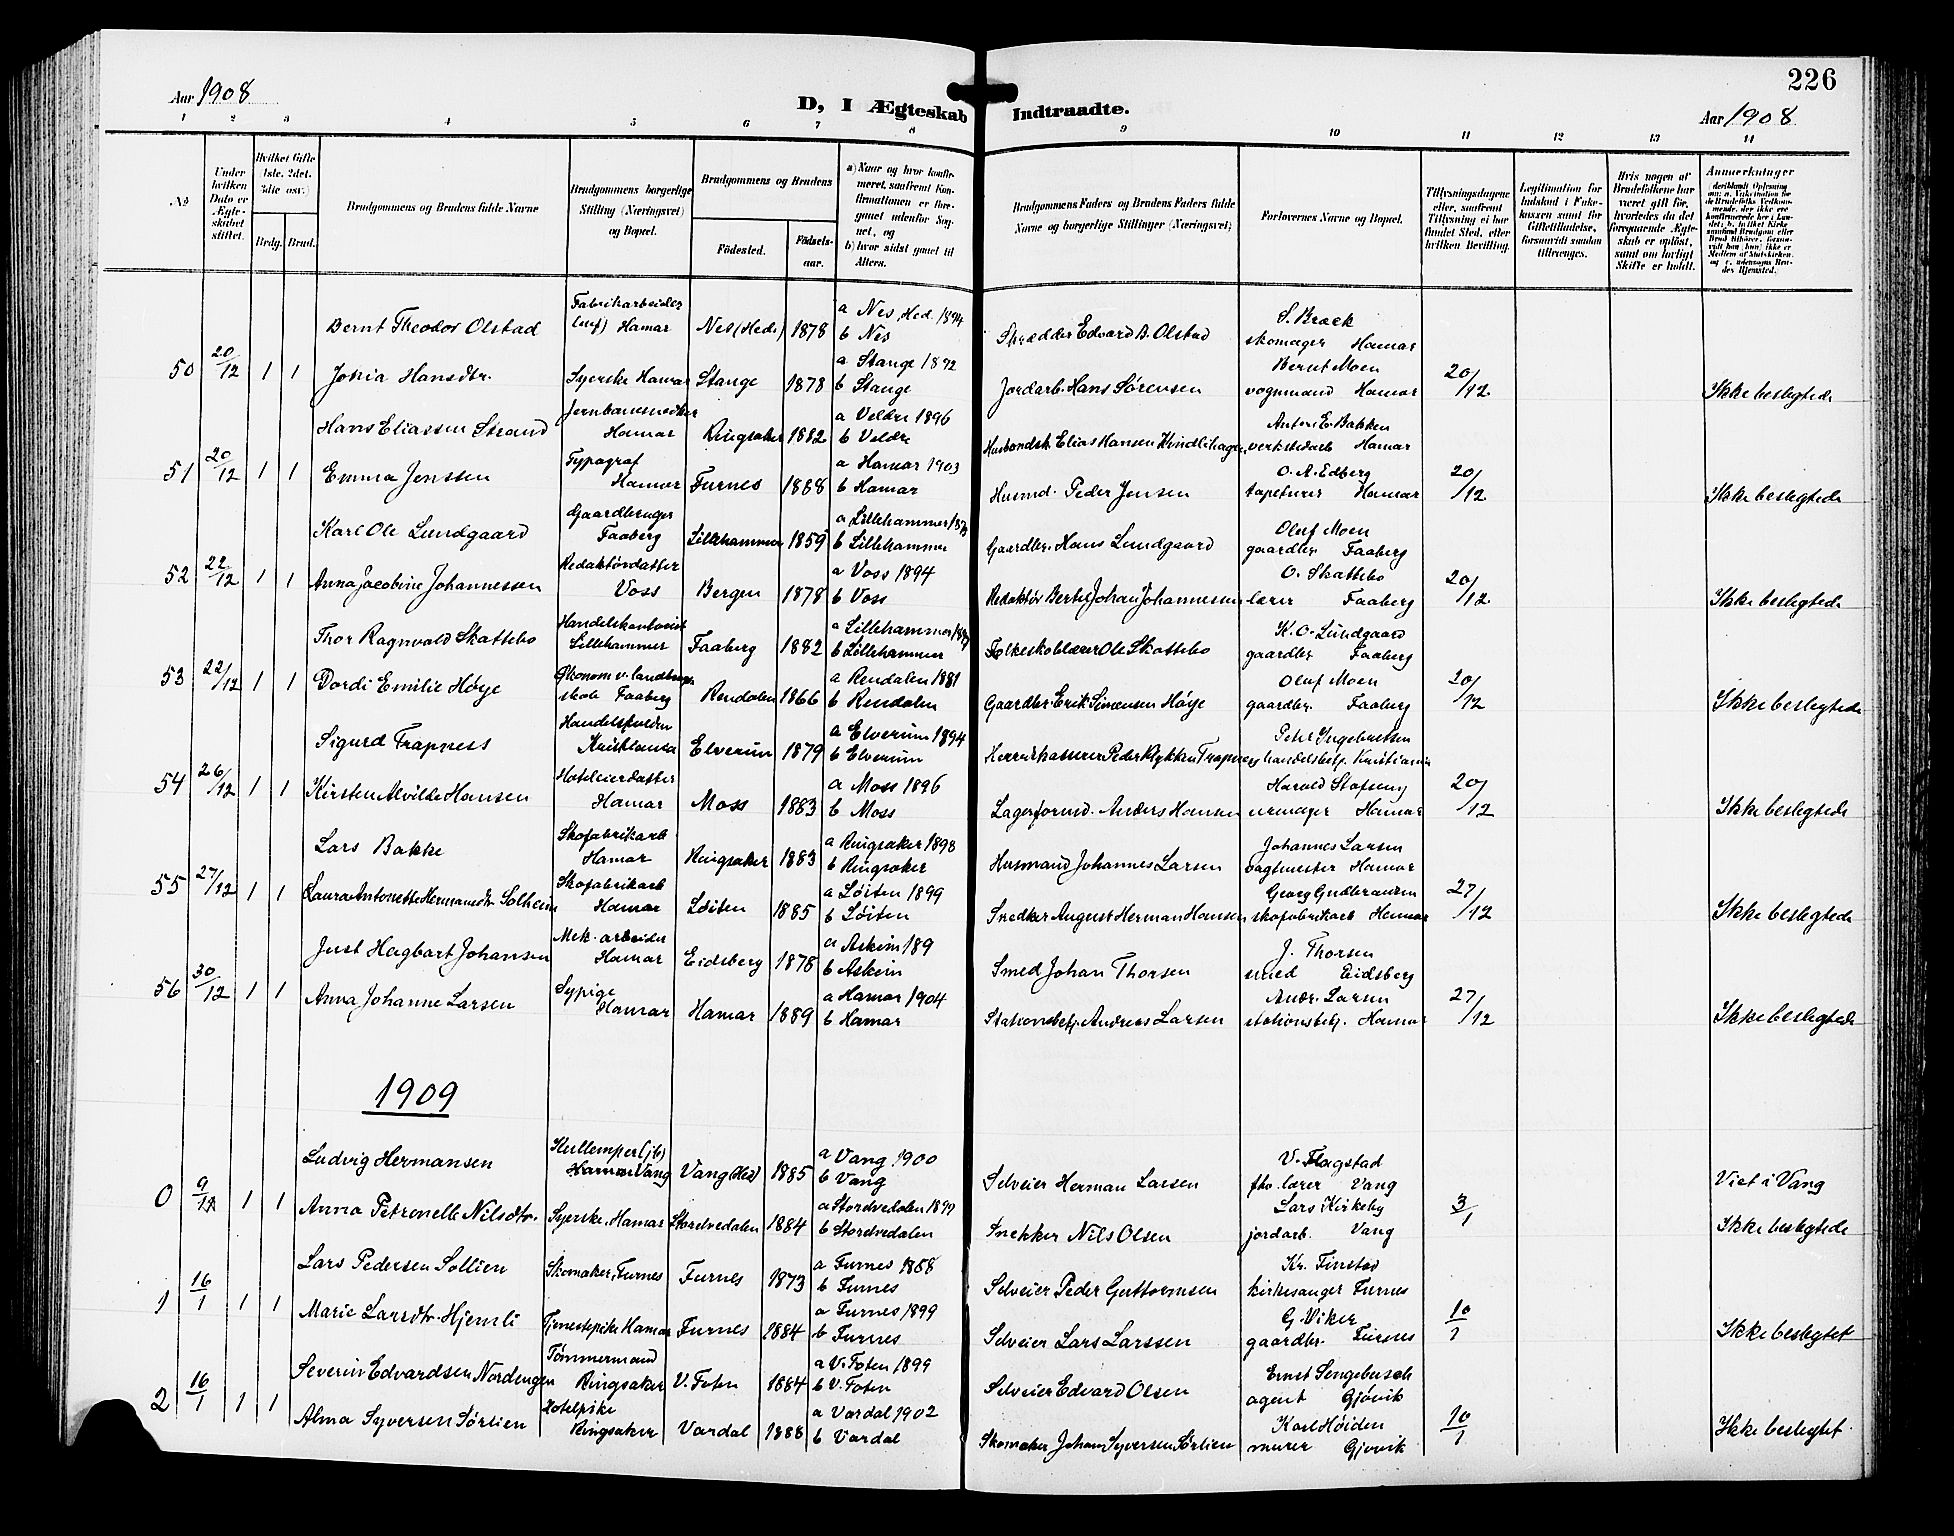 226
Aar 1908
D, I Ægteskab Indtraadte.
Aar 1908
1 2 3 4 5 6 7 8 9 10 11 12 13 14
No
Under hvilken Dato er Ægteskabet stiftet.
Hvilket Gifte (1ste, 2det, 3die osv.)
Brdg. Brud.
Brudgommens og Brudens fulde Navne
Brudgommens borgerlige Stilling (Næringsvei) og Bopæl.
Brudgommens og Brudens
Fødested.
Fødselsaar.
a) Naar og hvor konfirmeret, saafremt Konfirmationen er foregaaet udenfor Sognet, og
b) hvor sidst gaaet til Alters.
Brudgommens Faders og Brudens Faders fulde Navne og borgerlige Stillinger (Næringsvei)
Forlovernes Navne og Bopæl.
Tillysningsdagene eller, saafremt Tillysning ei har fundet Sted, efter hvilken Bevilling.
Legitimation for Indskud i Enkekassen samt for Giftetilladelse, forsaavidt saadan tiltrænges.
Hvis nogen af Brudefolkene har været gift før, hvorledes da det foregaaende Ægteskab er opløst, samt om lovligt Skifte er holdt.
Anmerkninger
50 20/12 1 1
Bernt Theodor Olstad Fabrikarbeider Hamar Nes (Hed.) 1878 a Nes, Hed. 1894 b Nes Skrædder Edvard B. Olstad S. Braek skomager Hamar
Jokia Hansdtr. Syerske Hamar Stange 1878 a Stange 1892 b Stange Jordarb. Hans Sørensen Bernt Moen vognmand Hamar 20/12 Ikke beslegtede
51 20/12 1 1
Hans Eliassen Strand Jernbanesnedker Hamar Ringsaker 1882 a Veldre 1896 b Veldre Husbondsk. Elias Hansen Kvindlihagen Anton E. Bakken verkstedarb. Hamar
Emma Jenssen Typograf Hamar Furnes 1888 a Hamar 1903 b Hamar Husmd. Peder Jensen O. A. Edberg tapetserer Hamar 20/12 Ikke beslegtede
52 22/12 1 1
Karl Ole Lundgaard Gaardbruger Faaberg Lillehammer 1859 a Lillehammer b Lillehammer Gaardbr. Hans Lundgaard Oluf Moen gaardbr. Faaberg
Anna Jacobine Johannessen Redaktørdatter Voss Bergen 1878 a Voss 1894 b Voss Redaktør Bertel Johan Johannesen O. Skattebo lærer Faaberg 20/12 Ikke beslegtede
53 22/12 1 1
Thor Ragnvald Skattebo Handelskontorist Lillehammer Faaberg 1882 a Lillehammer b Lillehammer Folkeskolelærer Ole Skattebo K. O. Lundgaard gaardbr. Faaberg
Dordi Emilie Høye Økonom v. landbrugsskole Faaberg Rendalen 1866 a Rendalen 1881 b Rendalen Gaardbr. Erik Simensen Høye Oluf Moen gaardbr. Faaberg 20/12 Ikke beslegtede
54 26/12 1 1
Sigurd Trapness Handelsfuldm. Kristiania Elverum 1879 a Elverum 1894 b Elverum Herredskasserer Peder Klykken Trapness Petr Ingebretsen handelsbetj. Kristiania
Kirsten Alvilde Hansen Hoteleierdatter Hamar Moss 1883 a Moss 1896 b Moss Lagerformd. Anders Hansen Harald Stafseng urmager Hamar 20/12 Ikke beslegtede
55 27/12 1 1
Lars Bakke Skofabrikarb. Hamar Ringsaker 1883 a Ringsaker 1898 b Ringsaker Husmand Johannes Larsen Johannes Larsen vagtmester Hamar
Laura Antonette Hermansdtr Solheim Skofabrikarb. Hamar Løiten 1885 a Løiten 1899 b Løiten Snedker August Herman Hansen Georg Gudbransen skofabrikarb Hamar 27/12 Ikke beslegtede
56 30/12 1 1
Just Hagbart Johansen Mek. arbeider Hamar Eidsberg 1878 a Askim 189 b Askim Smed Johan Thorsen J. Thorsen smed Eidsberg
Anna Johanne Larsen Sypige Hamar Hamar 1889 a Hamar 1904 b Hamar Stationsbetj. Andreas Larsen Andr. Larsen stationsbetj. Hamar 27/12 Ikke beslegtede
1909
0 9/1 1 1
Ludvig Hermansen Vang Vang (Hed) 1885 a Vang 1900 b Vang Selveier Herman Larsen V. Flagstad fhv. lærer Vang Viet i Vang
Anna Petronelle Nilsdtr. Syerske, Hamar Storelvedalen 1884 a Storelvedalen 1899 b Storelvedalen Snekker Nils Olsen Lars Kirkeby jordarb. Vang 3/1 Ikke beslegtede
1 16/1 1 1
Lars Pedersen Sollien Skomaker, Furnes Furnes 1873 a Furnes 1888 b Furnes Selveier Peder Guttormsen Kr. Finstad kirkesanger Furnes
Marie Larsdtr. Hjemli Tjenestepike Hamar Furnes 1884 a Furnes 1899 b Furnes Selveier Lars Larssen G. Viker gaardbr. Furnes 10/1 Ikke beslegtet
2 16/1 1 1
Severin Edvardsen Nordengen Tømmermand Ringsaker V. Toten 1884 a V. Toten 1899 b V. Toten Selveier Edvard Olsen Ernst Sengebusch agent Gjøvik
Alma Syversen Sørlien Hotelpike Ringsaker Vardal 1888 a Vardal 1902 b Vardal Skomaker Johan Syversen Sørlien Karl Høiden murer Gjøvik 10/1 Ikke beslegtet